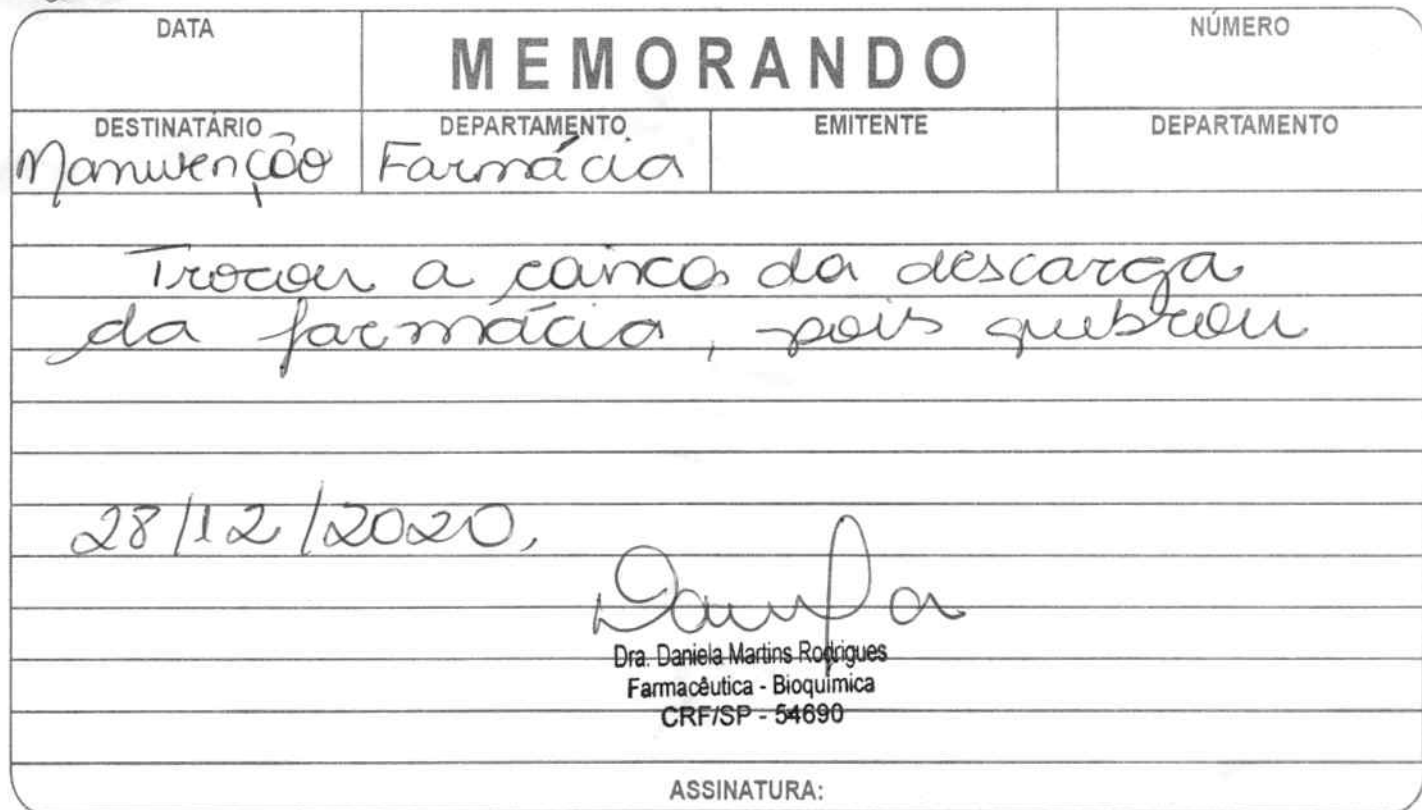 DATA
MEMORANDO
NÚMERO
DESTINATÁRIO
Manutenção
DEPARTAMENTO
Farmácia
EMITENTE
DEPARTAMENTO
Trocar a da descarga
da farmácia, pois quebrou
28/12/2020,
Dra. Daniela Martins Rodrigues
Farmacêutica - Bioquímica
CRF/SP - 54690
ASSINATURA: